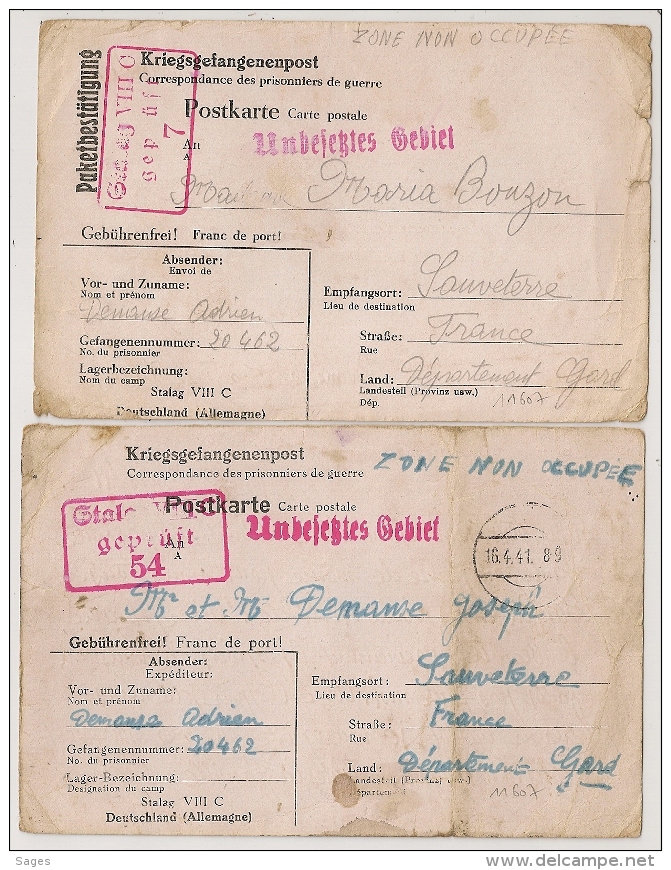 ZONE NON OCCUPÉE
Paketbestätigung
Kriegsgefangenenpost
Correspondance des prisonniers de guerre
Stalag VIII C
geprüft
7
Postkarte Carte postale
Unbesetztes Gebiet
An
A
Maria Bouzon
Gebührenfrei! Franc de port!
Absender:
Envoi de
Vor- und Zuname:
Nom et prénom
Demanse Adrien
Gefangenennummer: 20462
No. du prisonnier
Lagerbezeichnung:
Nom du camp
Stalag VIII C
Deutschland (Allemagne)
Empfangsort: Sauveterre
Lieu de destination
Straße: France
Rue
Land: Département Gard
Landesteil (Provinz usw.)
Dép.
11607
Kriegsgefangenenpost
Correspondance des prisonniers de guerre
ZONE NON OCCUPÉE
Stalag VIII C
geprüft
54
Postkarte Carte postale
Unbesetztes Gebiet
An
A
16.4.41. 8 9
Mr et Me Demanse Joseph
Gebührenfrei! Franc de port!
Absender:
Expéditeur:
Vor- und Zuname:
Nom et prénom
Demanse Adrien
Gefangenennummer: 20462
No. du prisonnier
Lager-Bezeichnung:
Designation du camp
Stalag VIII C
Deutschland (Allemagne)
Empfangsort: Sauveterre
Lieu de destination
Straße: France
Rue
Land: Département Gard
Landesteil (Provinz usw.)
Département
11607
Sages
delcampe.net